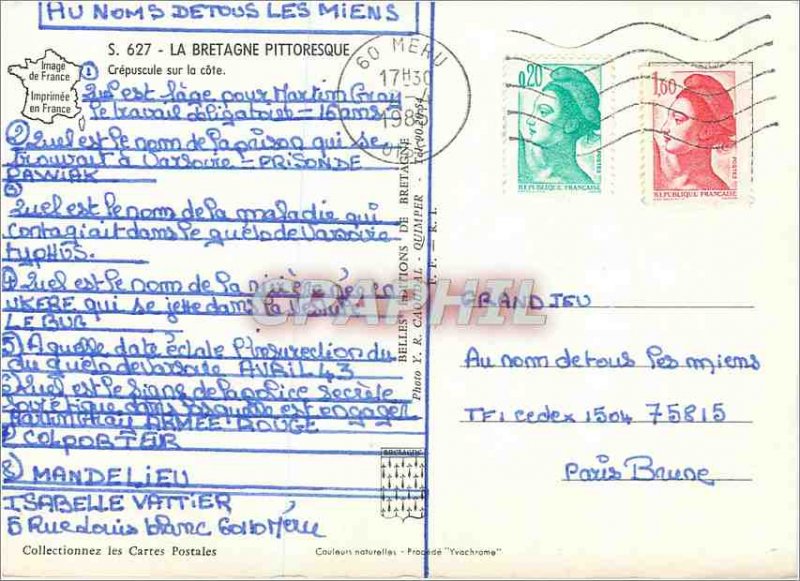 AU NOMS DE TOUS LES MIENS
S. 627 - LA BRETAGNE PITTORESQUE
Crépuscule sur la côte.
Image
de France
Imprimée
en France
60 MERU
17H30
198
0,20
1,60
POSTES
REPUBLIQUE FRANÇAISE
POSTES
REPUBLIQUE FRANÇAISE
① Quel est l'âge pour Martin Gray
le travail obligatoire - 16 ans
② Quel est le nom de la prison qui se
trouvait à Varsovie - PRISON DE
PAWIAK
③
Quel est le nom de la maladie qui
contagiait dans le guéto de Varsovie
typhus.
④ Quel est le nom de la rivière
UKERE qui se jette dans la
LE BUR
5) A quelle date éclate l'insurection du
du guéto de Varsovie AVRIL 43
6) Quel est le signe de la police secrète
Soviétique dans lesquelle est engager
Martin Gray ARMEE ROUGE
7) COLPORTER
8) MANDELIEU
ISABELLE VATTIER
5 Rue Louis blanc Méru
Collectionnez les Cartes Postales
BELLES EDITIONS DE BRETAGNE
Photo Y. R. CAOUDAL - QUIMPER
I. P. - R. I.
CPAPHIL
BRETAGNE
Couleurs naturelles - Procédé "Yvachrome"
GRAND JEU
Au nom de tous les miens
TF1 cedex 1504 75815
Paris Brune